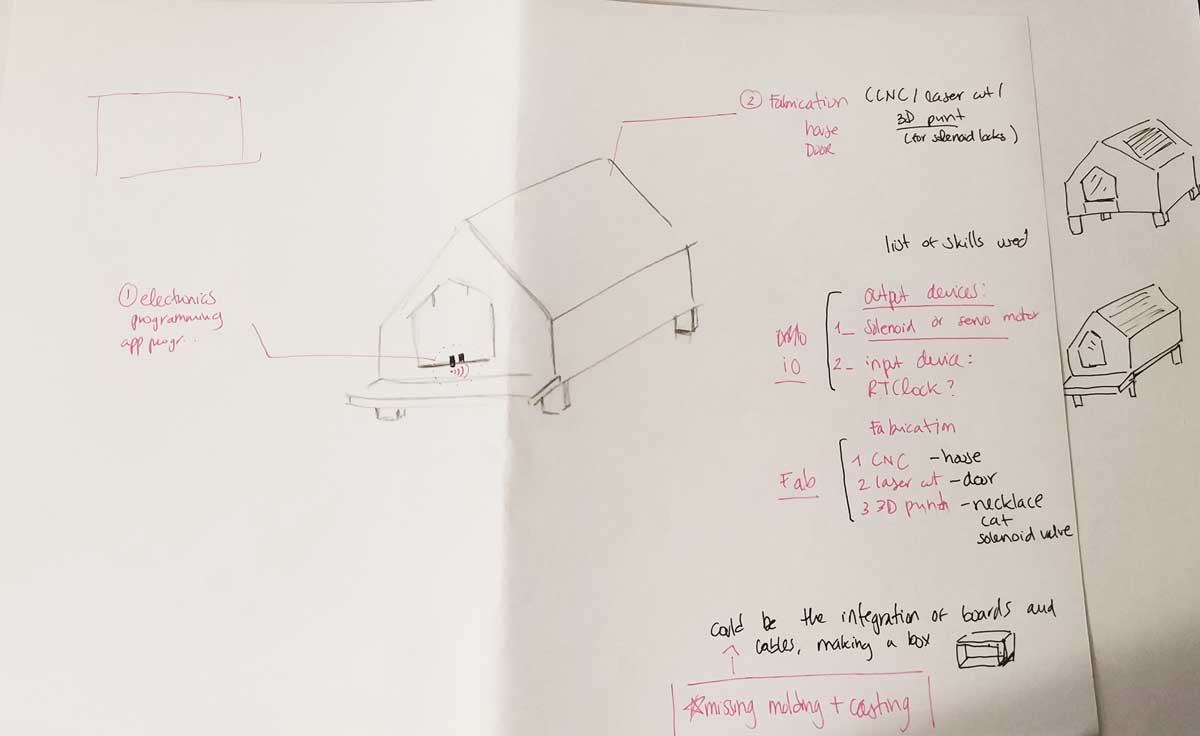 ② Fabrication (CNC / laser cut /
house 3D print
Door (for solenoid locks)
list of skills used
① electronics
programming
app progr..
output devices:
1_ Solenoid or servo motor
io
2_ input device:
RTClock?
Fabrication
Fab
1 CNC - house
2 laser cut - door
3 3D print - necklace
cat
solenoid valve
could be the integration of boards and
cables, making a box
missing molding + casting